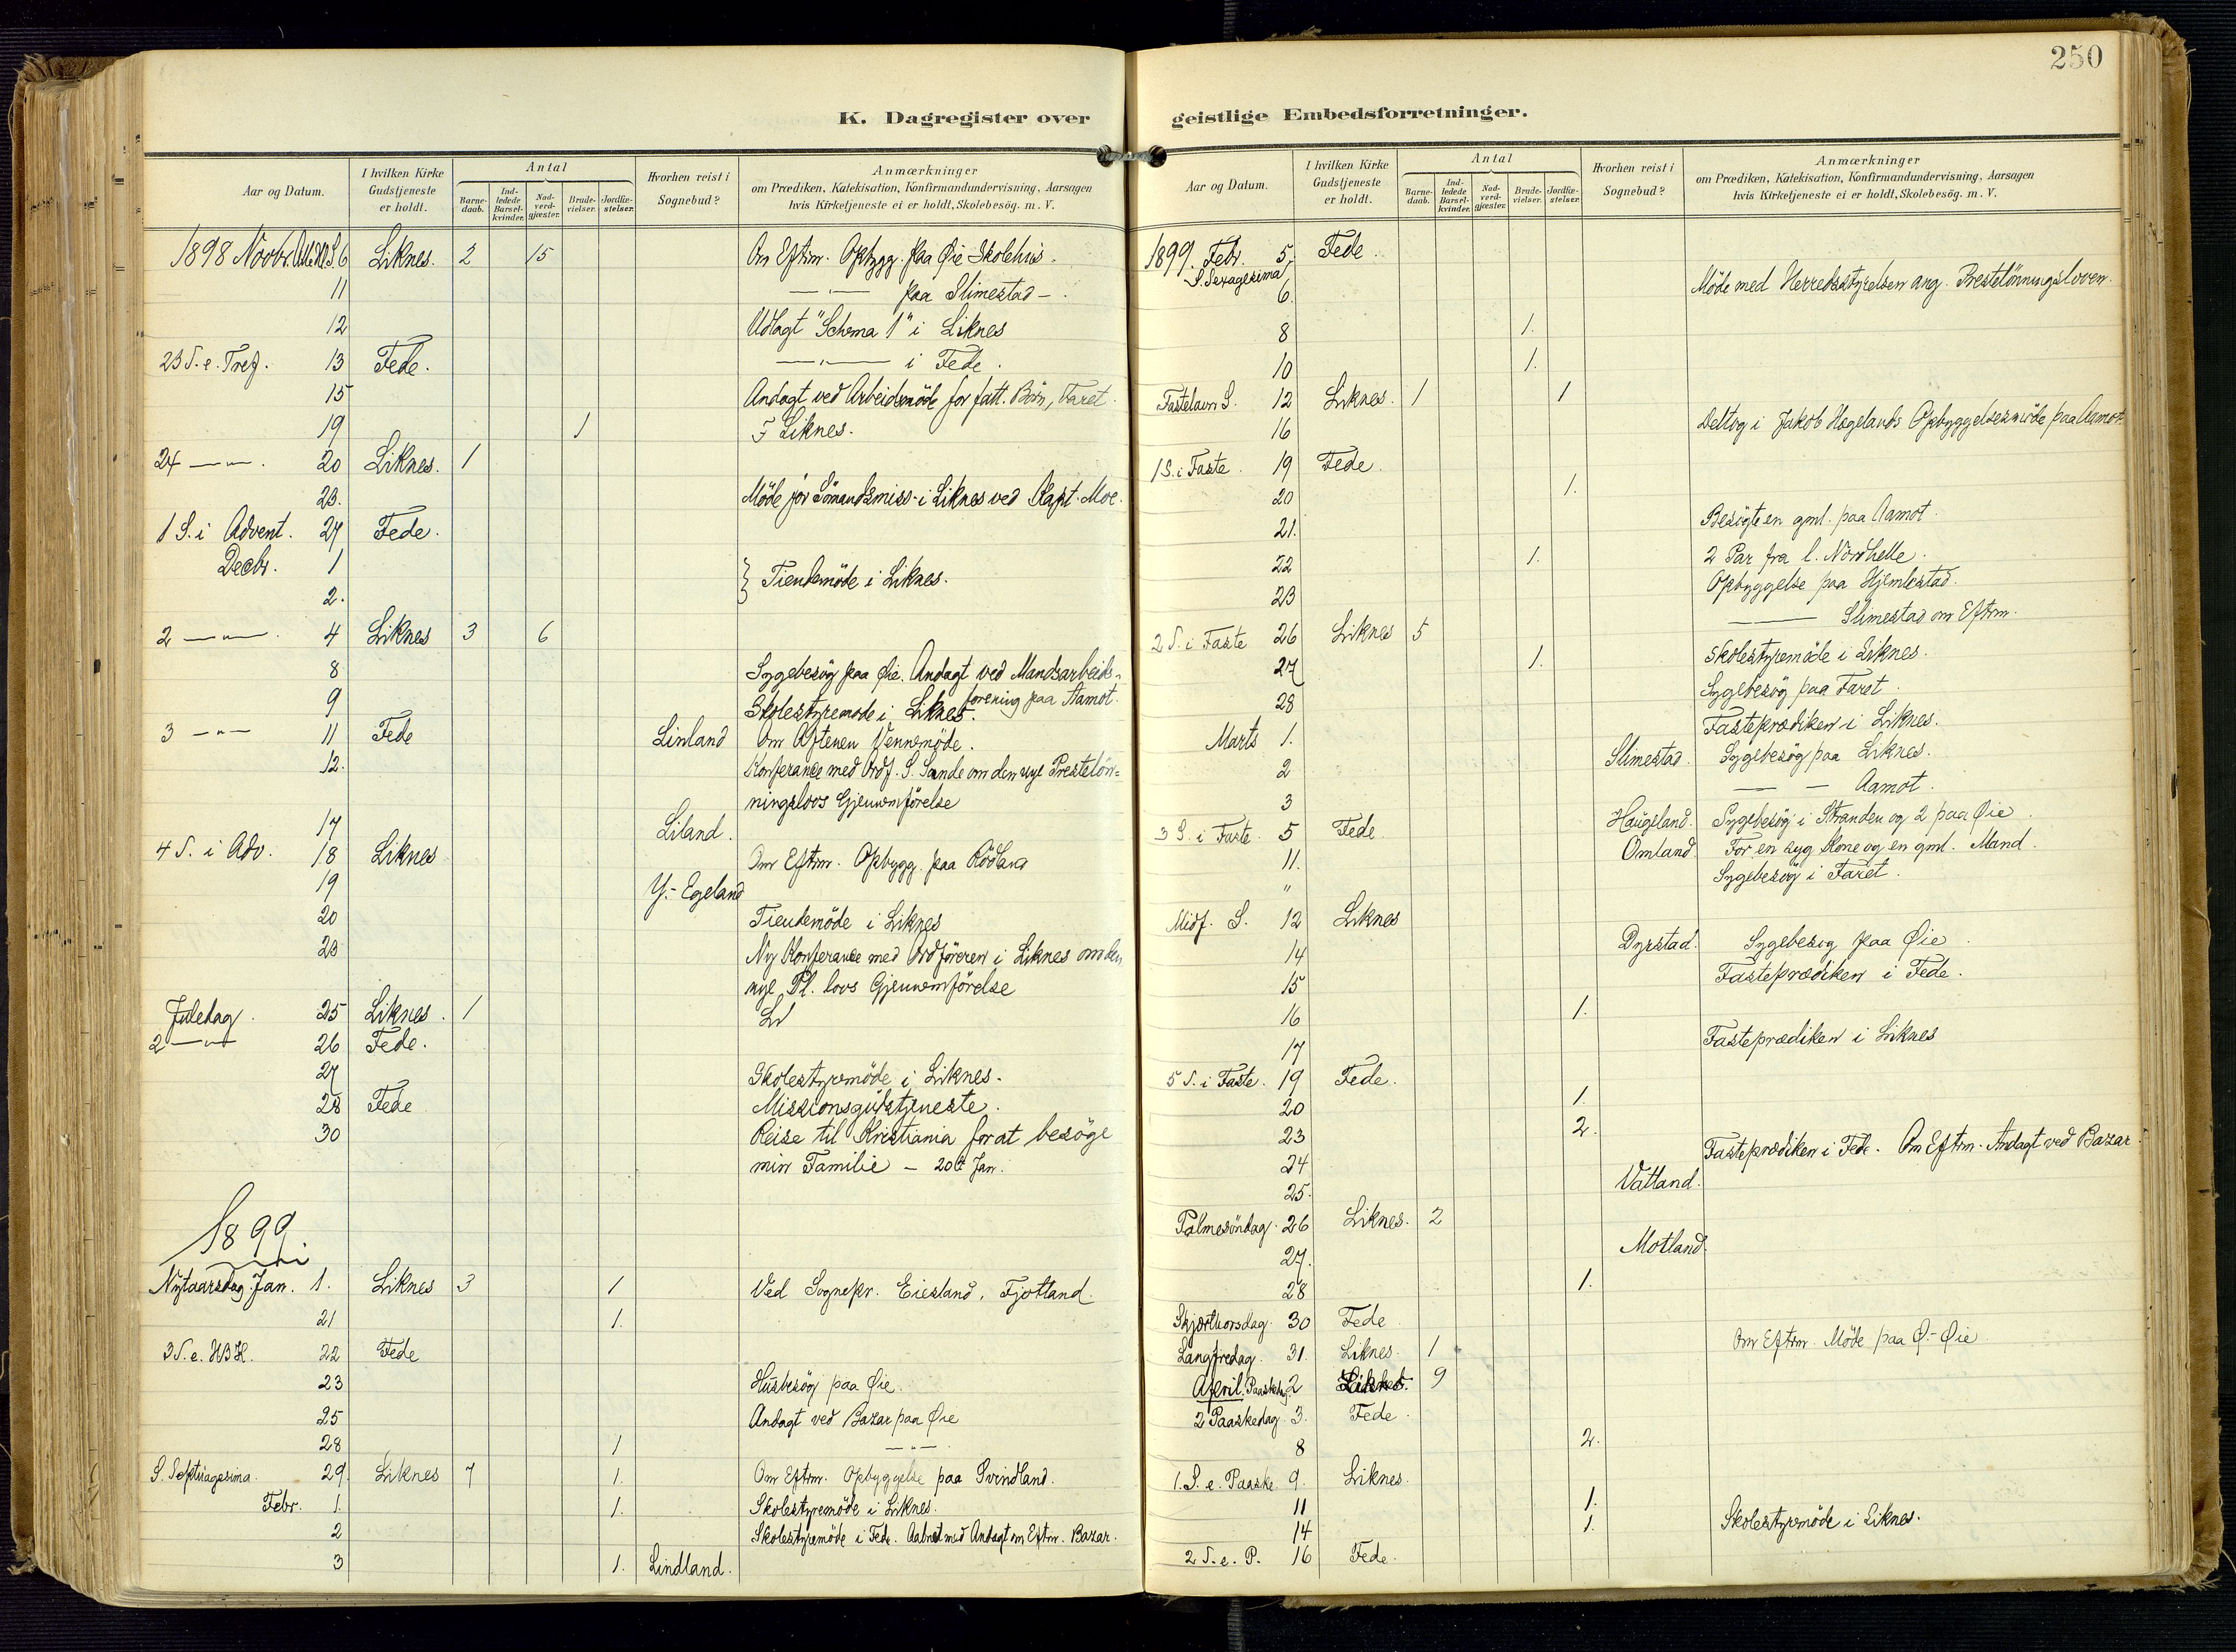 250
K. Dagregister over
geistlige Embedsforretninger.
Aar og Datum.
I hvilken Kirke Gudstjeneste er holdt.
Antal
Barne-daab.
Ind-ledede Barsel-kvinder.
Nad-verd-gjæster.
Brude-vielser.
Jordfæ-stelser.
Hvorhen reist i Sognebud?
Anmærkninger
om Prædiken, Katekisation, Konfirmandundervisning, Aarsagen
hvis Kirketjeneste ei er holdt, Skolebesög. m. V.
1898 Novbr. 6 Liknes. 2 15 Om Eftrm. Opbygg. paa Øie Skolehus.
11 —"— paa Slimestad -.
12 Udlagt "Schema 1" i Liknes
23 S. e. Tref. 13 Fede. —"— i Fede.
15 Andagt ved Arbeidsmöde for fatt. Börn, Faret.
19 1 F Liknes.
24 —"—. 20 Liknes. 1
23. Möde for Sömandsmiss. i Liknes ved Kapt. Moe.
1 S. i Advent. 27 Fede.
Decbr. 1 } Tiendemöde i Liknes.
2.
2 —"—. 4 Liknes 3 6
8 Sygebesög paa Øie. Andagt ved Mandsarbeids-
forening paa Aamot.
9 Skolestyremöde i Liknes.
3 —"— 11 Fede Linland Om Aftenen Vennemöde.
12. Konferance med Ordf. S. Sande om den nye Prestelön=
ningslovs Gjennemförelse
17 Liland.
4 S. i Adv. 18 Liknes Om Eftrm. Opbygg. paa Rödland
19 Y.- Egeland
20 Tiendemöde i Liknes
23 Ny Konferance med Ordföreren i Liknes om den
nye Pl. lovs Gjennemförelse
Juledag. 25 Liknes. 1
2 —"— 26 Fede.
27 Skolestyremöde i Liknes.
28 Fede Missionsgudstjeneste.
30 Reise til Kristiania for at besöge
min Familie - 20de Jan.
1899
Nytaarsdag Jan. 1. Liknes 3 1 Ved Sognepr. Eiesland, Fjotland.
21 1.
3 S. e. H3K. 22 Fede
23 Husbesög paa Øie.
25 Andagt ved Bazar paa Øie
28 1 —"—
S. Septuagesima. 29. Liknes 7 1. Om Eftrm. Opbyggelse paa Svindland.
Febr. 1. 1. Skolestyremöde i Liknes.
2 Skolestyremöde i Fede. Aabnet med Andagt om Eftrm. Bazar.
3 1. Lindland.
Aar og Datum.
I hvilken Kirke Gudstjeneste er holdt.
Antal
Barne-daab.
Ind-ledede Barsel-kvinder.
Nad-verd-gjæster.
Brude-vielser.
Jordfæ-stelser.
Hvorhen reist i Sognebud?
Anmærkninger
om Prædiken, Katekisation, Konfirmandundervisning, Aarsagen
hvis Kirketjeneste ei er holdt, Skolebesög. m. V.
1899. Febr. 5, Fede.
S. Sexagesima
6. Möde med Herredsstyrelsen ang. Prestelönningsloven.
8 1.
10 1.
Fastelavn S. 12 Liknes. 1 1
16 Deltog i Jakob Hægelands Opbyggelsesmöde paa Aamot.
1 S. i Faste. 19 Fede.
20 1.
21. Besögte en gml. paa Aamot.
22 1. 2 Par fra l. Nordhelle.
23 Opbyggelse paa Hjemlestad.
——— Slimestad om Eftrm.
2 S. i Faste 26 Liknes 5
27 1. Skolestyremöde i Liknes.
28 Sygebesög paa Faret.
Marts 1. Fasteprædiken i Liknes.
2 Slimestad. Sygebesög paa Liknes.
3 — — Aamot.
3 S. i Faste. 5 Fede Haugeland. Sygebesög i Stranden og 2 paa Øie.
11. Omland. For en syg Kone og en gml. Mand.
" Sygebesög i Faret.
Midf. S. 12 Liknes
14 Dyrstad. Sygebesög paa Øie.
15 Fasteprædiken i Fede.
16 1.
17 Fasteprædiken i Liknes
5 S. i Faste. 19 Fede.
20 1.
23 2.
24 Fasteprædiken i Fede. Om Eftrm. Andagt ved Bazar.
25. Vatland.
Palmesöndag. 26 Liknes. 2
27. Motland.
28 1.
Skjærthorsdag. 30 Fede
Langfredag. 31. Liknes. 1 Om Eftrm. Möde paa Ø.- Øie
April. Paaskedg. 2 Liknes. 9
2 Paaskedag. 3. Fede.
8 2.
1. S. e. Paaske. 9. Liknes.
11 1.
14 1. Skolestyremöde i Liknes.
2 S. e. P. 16 Fede.